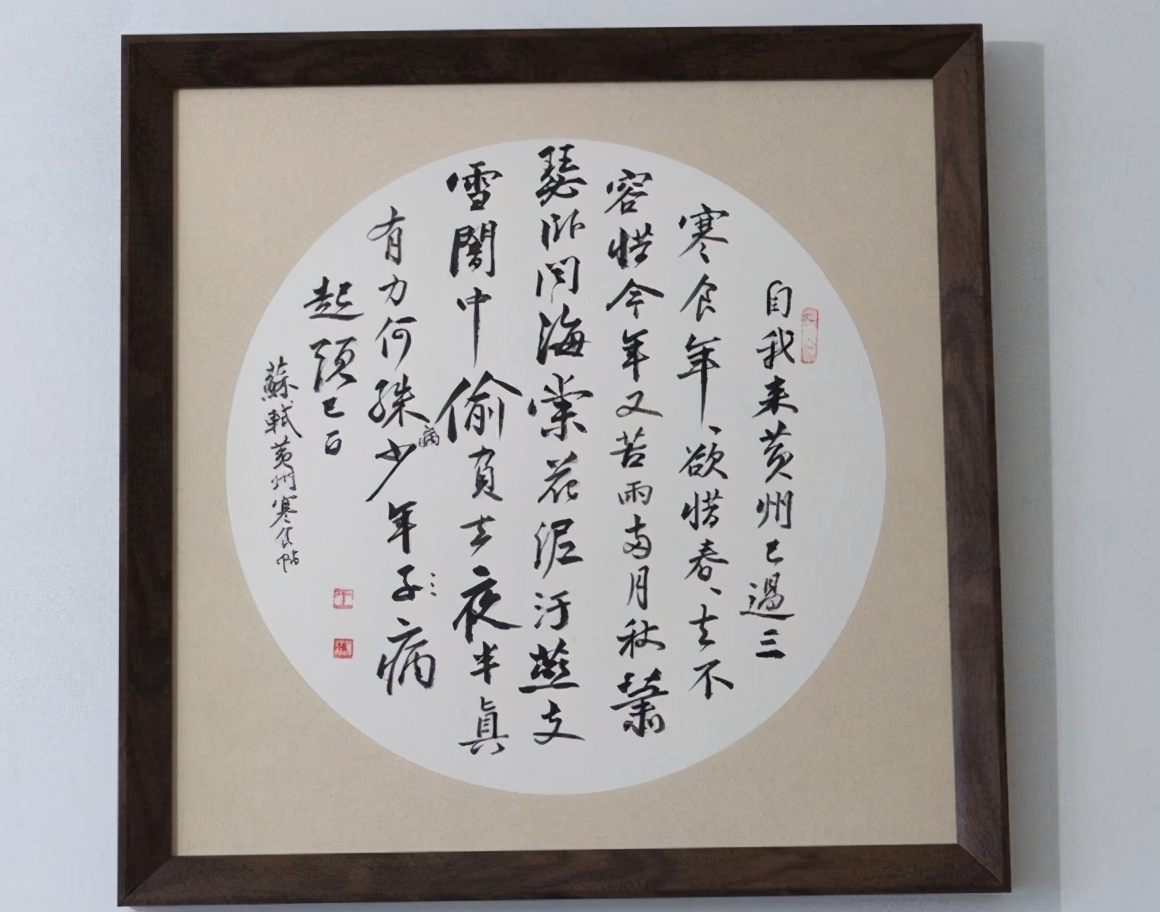 自我来黄州已過三
寒食年、欲惜春、去不
容惜今年又苦雨兩月秋蕭
瑟卧闻海棠花泥汙燕支
雪闇中偷負去夜半真
有力何殊病少年子病
起頭已白
蘇軾黄州寒食帖